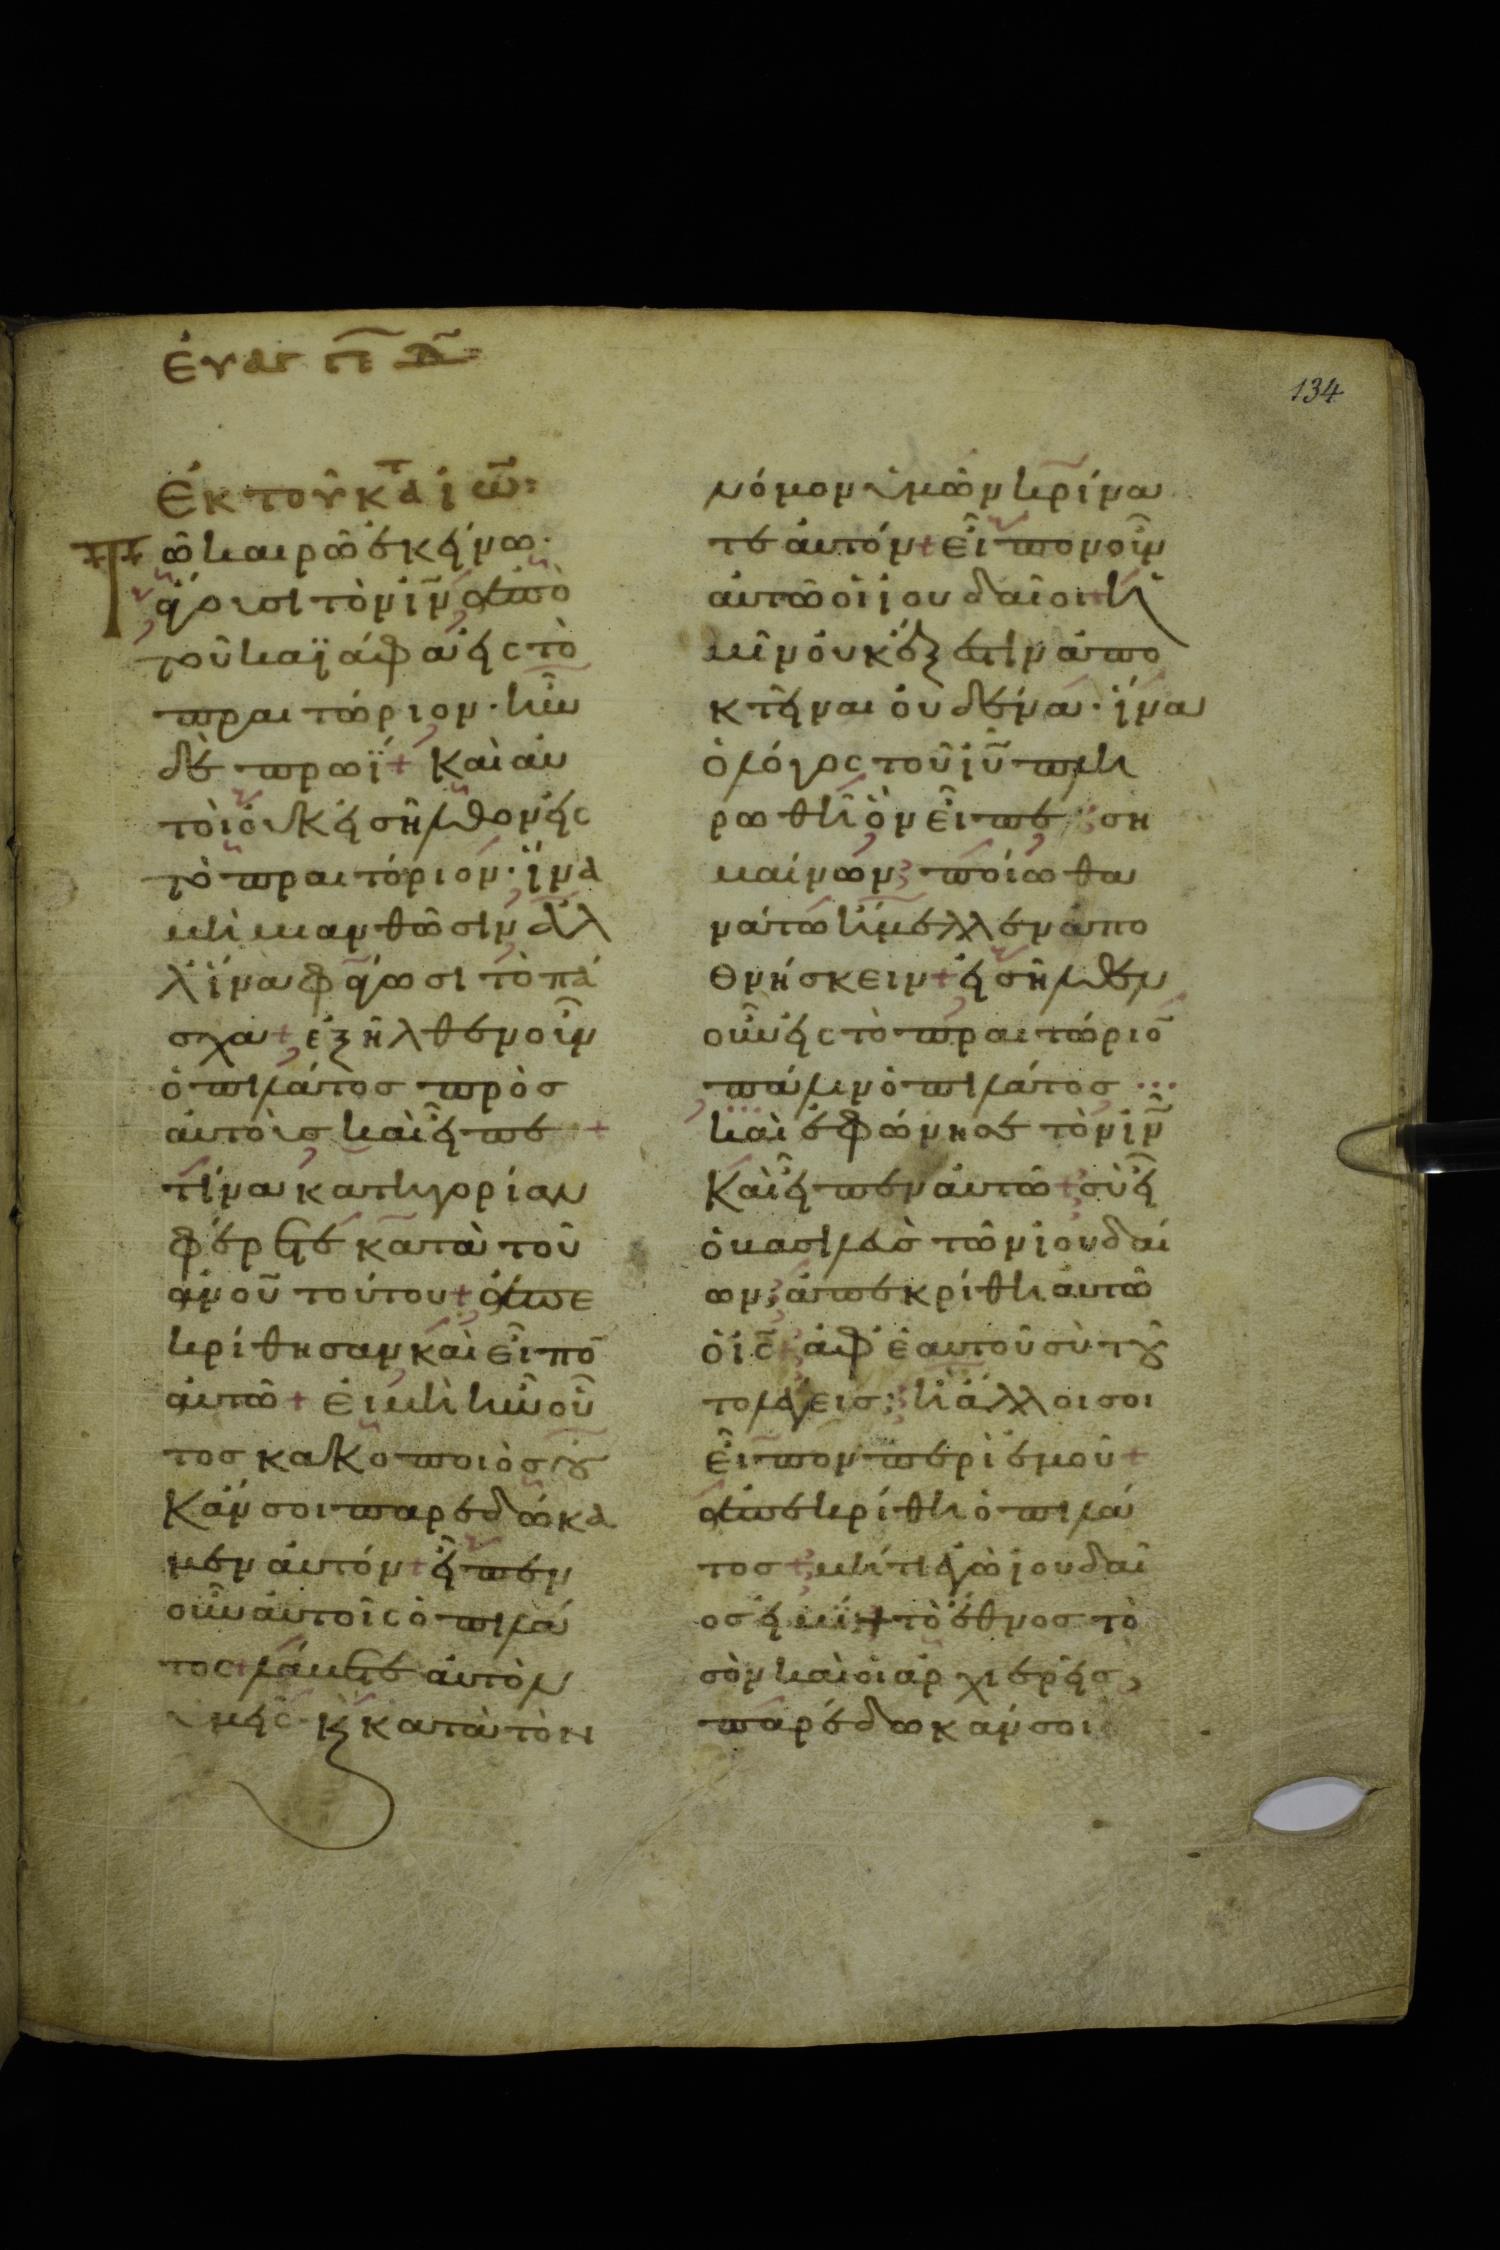 ἐυαγ
134
Ἐκ τοῦ κα̅τ̅ ἰω̅:
Τῶ καιρῶ ἐκείνω·
ἄγουσι τὸν ἰν̅ ἀπὸ
τοῦ καϊάφα εἰς τὸ
πραιτώριον· ἦν
δὲ πρωΐ + Καὶ αὐ
τοὶ οὐκ εἰσῆλθον εἰς
τὸ πραιτόριον· ἵνα
μὴ μιανθῶσιν ἀλ
λ' ἵνα φάγωσι τὸ πά
σχα + ἐξῆλθεν οὖν
ὁ πιλάτος πρὸς
αὐτοὺς καὶ εἶπε +
τίνα κατηγορίαν
φέρετε κατὰ τοῦ
ἀν̅ο̅υ̅ τούτου + ἀπε
κρίθησαν καὶ εἶπο̅
αὐτῶ + εἰ μὴ ἦν οὗ
τος κακοποιὸς οὐ
κἄν σοι παρεδώκα
μεν αὐτόν + εἶπεν
οὖν αὐτοῖς ὁ πιλά
τος + λάβετε αὐτὸν
ὑμεῖς· ϗ κατὰ τὸν
νόμον ὑμῶν κρίνα
τε αὐτόν + εἶπον οὖν
αὐτῶ οἱ ἰουδαῖοι + ἡ
μῖν οὐκ ἔξεστιν ἀπο
κτεῖναι οὐδένα· ἵνα
ὁ λόγος τοῦ ἰυ̅ πλη
ρωθῆ ὃν εἶπε ση
μαίνων ποίω θα
νάτω ἤμελλεν ἀπο
θνήσκειν + εἰσῆλθεν
οὖν εἰς τὸ πραιτώριο̅
πάλιν ὁ πιλάτος ...
καὶ ἐφώνησε τὸν ἰν̅
Καὶ εἶπεν αὐτῶ + σὺ εἶ
ὁ βασιλεὺς τῶν ἰουδαί
ων; ἀπεκρίθη αὐτῶ
ὁ ἰς̅ + ἀφ' ἑαυτοῦ σὺ τοῦ
το λέγεις; ἢ ἄλλοι σοι
εἶπον περὶ ἐμοῦ +
ἀπεκρίθη ὁ πιλά
τος + μήτι ἐγὼ ἰουδαῖ
ος εἰμί; + τὸ ἔθνος τὸ
σὸν καὶ οἱ ἀρχιερεῖς,
παρέδωκάν σοι